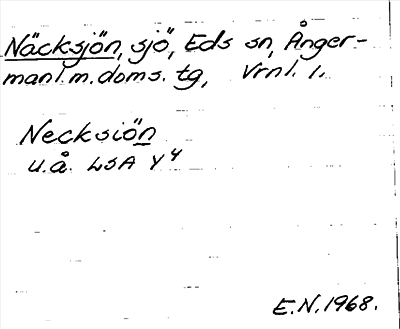 Näcksjön, sjö, Eds sn, Ånger-
manl. m. doms. tg, Vrnl. 1.
Necksiön
u.å. LSA Y4
E.N. 1968.